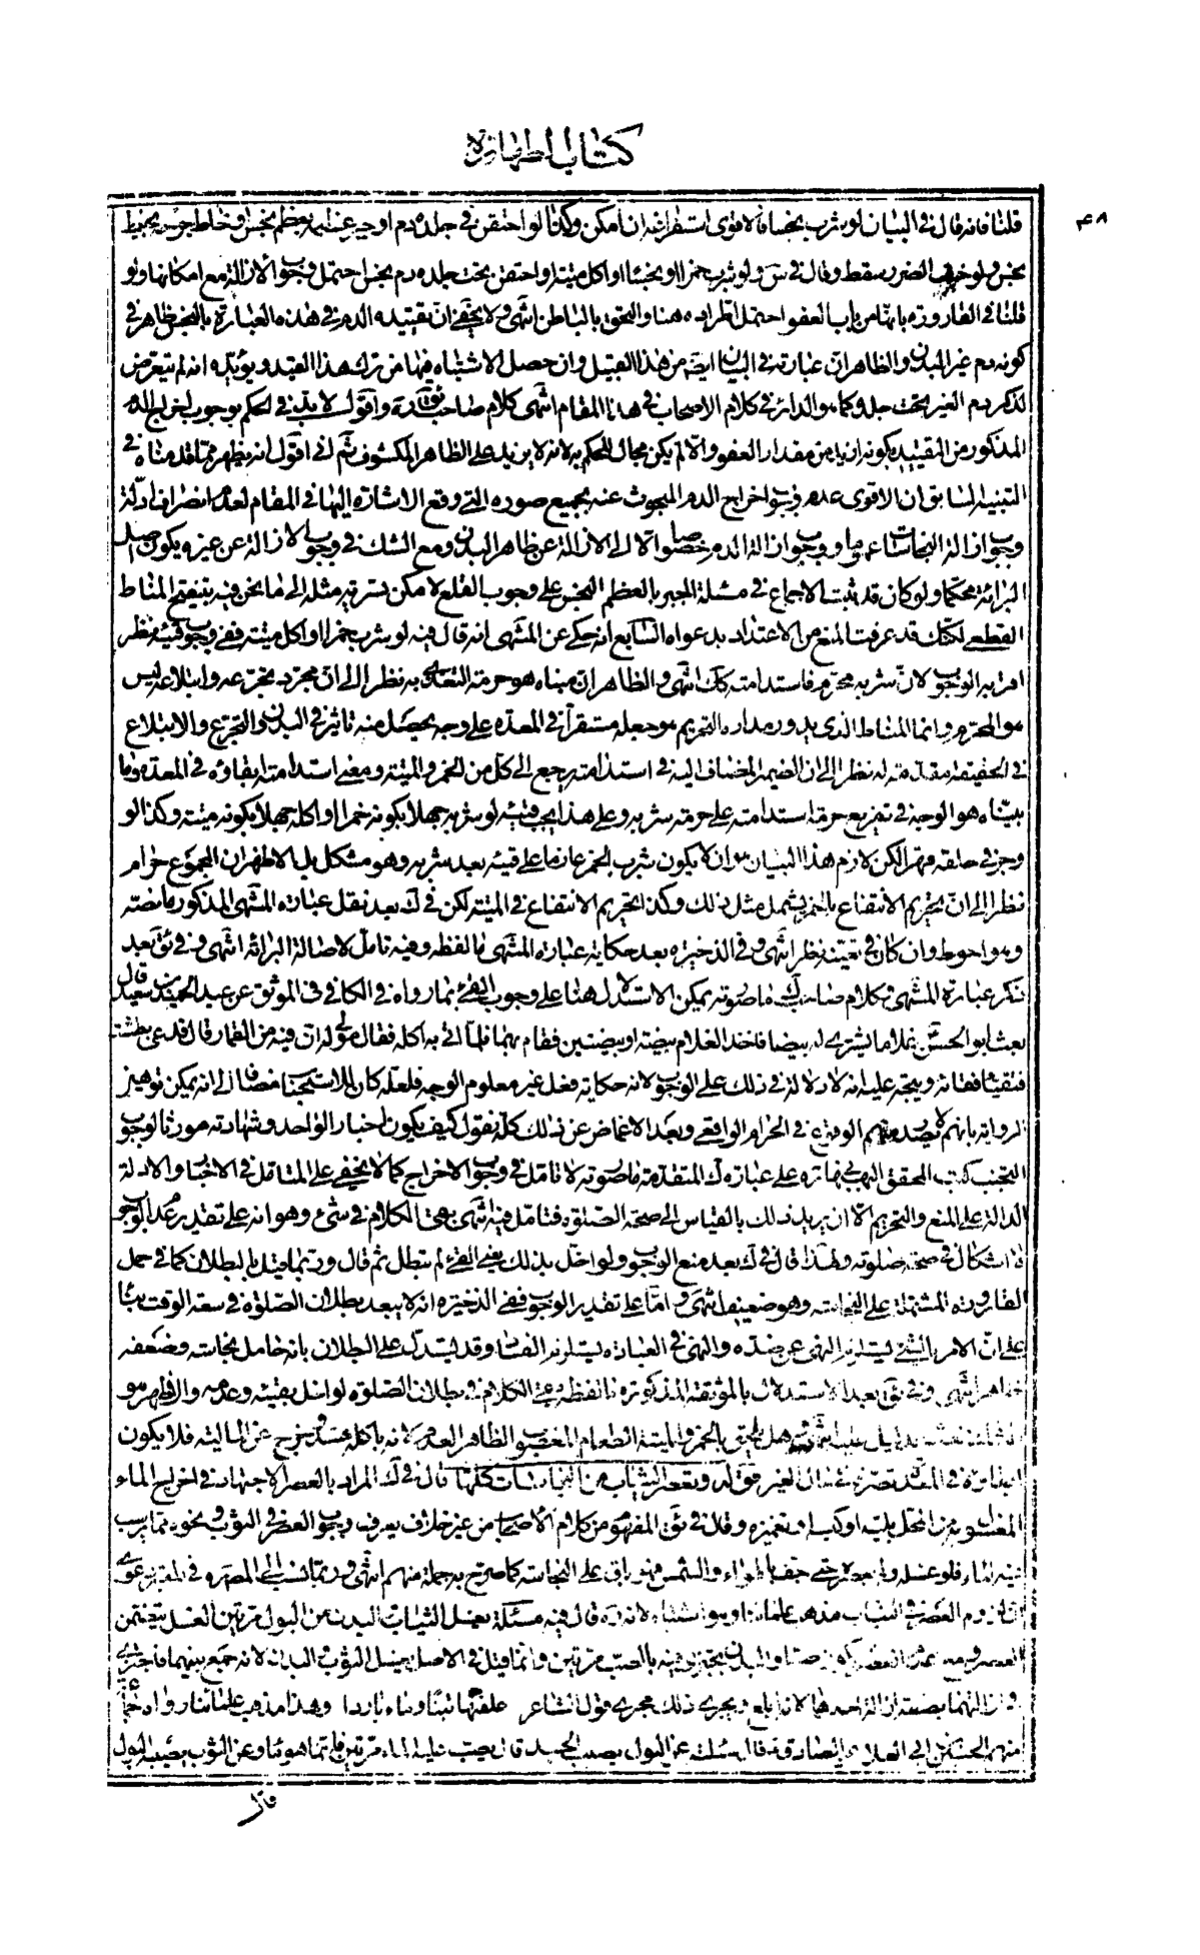 كتاب الطهارة
۴۸
قلنا فانه قال في البيان لو شرب نجسا فالاقوى استفراغه ان امكن وكذا لو احتقن في جلده دم او جبر عظمه بعظم نجس او خاط جرحه بخيط
نجس ولو خيف الضرر سقط وقال في س ولو شرب خمرا او نجسا او اكل ميتة او احتقن تحت جلده دم نجس احتمل وجوب الازالة مع امكانها ولو
قلنا في القارورة بانها من باب العفو احتمل اطراده هنا والتحق بالباطن انتهى ولا يخفى ان تقييده الدم في هذه العبارة بالنجس ظاهر في
كونه دم غير البدن والظاهر ان عبارته في البيان ايضا من هذا القبيل وان حصل الاشتباه فيها من ترك هذا القيد ويؤيده انه لم يتعرض
لذكر دم الغير تحت جلده كما هو الدائر في كلام الاصحاب في هذا المقام انتهى كلام صاحب واقول لا بد في الحكم بوجوب اخراج الدم
المذكور من التقييد بكونه ازيد من مقدار العفو والا لم يكن مجال للحكم به لانه لا يزيد على الظاهر المكشوف ثم اني اقول انه يظهر مما قدمناه في
التنبيه السابق ان الاقوى عدم وجوب اخراج الدم المبحوث عنه بجميع صوره التي وقع الاشارة اليها في المقام لعدم انصراف ادلة
وجوب ازالة النجاسات عموما ووجوب ازالة الدم خصوصا الا الى الازالة عن ظاهر البدن ومع الشك في وجوب الازالة عن غيره يكون اصل
البرائة محكما ولو كان قد ثبت الاجماع في مسئلة الجبر بالعظم النجس على وجوب القلع لامكن تسرية مثله الى ما نحن فيه بتنقيح المناط
القطعي لكنك قد عرفت المنع من الاعتداد بدعواه السابع انه حكي عن المنتهى انه قال فيه لو شرب خمرا او اكل ميتة ففي وجوب قيئه نظر
اقربه الوجوب لان شربه محرم فاستدامته كك انتهى والظاهر ان مبناه هو حرمة التغذي به نظرا الى ان مجرد تجرعه وابتلاعه ليس
هو المحرم وانما المناط الذي يدور مداره التحريم هو جعله مستقرا في المعدة على وجه يحصل منه تاثير في البدن والتجرع والابتلاع
في الحقيقة مقدمة له نظرا الى ان الضمير المضاف اليه في استدامته يرجع الى كل من الخمر والميتة ومعنى استدامته ابقاؤه في المعدة وما
بيناه هو الوجه في تفريع حرمة استدامته على حرمة شربه وعلى هذا يجب قيئه لو شربه جهلا بكونه خمرا او اكله جهلا بكونه ميتة وكذا لو
وجر في حلقه قهرا لكن لازم هذا البيان هو ان لا يكون شرب الخمر عازما على قيئه بعد شربه وهو مشكل بل الاظهر ان المجموع حرام
نظرا الى ان تحريم الانتفاع بالخمر يشمل مثل ذلك وكذا تحريم الانتفاع في الميتة لكن في ك بعد نقل عبارة المنتهى المذكور ما نصه
وهو احوط وان كان في تعينه نظر انتهى وفي الذخيرة بعد حكاية عبارة المنتهى ما لفظه وفيه تامل لاصالة البرائة انتهى وفي ئق بعد
ذكر عبارة المنتهى وكلام صاحب ك ما صورته يمكن الاستدلال هنا على وجوب القئ بما رواه في الكافي في الموثق عن عبد الحميد بن سعيد قال
بعث ابو الحسن غلاما يشتري له بيضا فاخذ الغلام بيضة او بيضتين فقامر بهما فلما اتى به اكله فقال مولى له ان فيه من القمار قال فدعى بطشت
فتقيأ فقائه ويتجه عليه انه لا دلالة في ذلك على الوجوب لانه حكاية فعل غير معلوم الوجه فلعله كان للاستحباب مضافا الى انه يمكن توهين
الرواية بانهم لا يصدر منهم الوقوع في الحرام الواقعي وبعد الاغماض عن ذلك كله نقول كيف يكون اخبار الواحد وشهادته مورثا لوجوب
التجنب كتب المحقق البهبهاني ره على عبارة ك المتقدمة ما صورته لا تامل في وجوب الاخراج كما لا يخفى على المتامل في الاخبار والادلة
الدالة على المنع والتحريم الا ان يريد ذلك بالقياس الى صحة الصلوة فتامل فيه انتهى بقي الكلام في شئ وهو انه على تقدير عدم الوجوب
لا اشكال في صحة صلوته ولهذا قال في ك بعد منع الوجوب ولو اخل بذلك يعني القئ لم تبطل ثم قال وربما قيل بالبطلان كما في حمل
القارورة المشتملة على النجاسة وهو ضعيف انتهى واما على تقدير الوجوب ففي الذخيرة انه لا يبعد بطلان الصلوة في سعة الوقت بناء
على ان الامر بالشئ يستلزم النهي عن ضده والنهي في العبادة يستلزم الفساد وقد يستدل على البطلان بانه حامل نجاسة وضعفه
ظاهر انتهى وفي ئق بعد الاستدلال بالموثقة المذكورة ما لفظه بقي الكلام في بطلان الصلوة لو اخل بقيئه وعدمه والاظهر هو
هل يلحق بالخمر والميتة الطعام المغصوب الظاهر العدم لانه باكله يخرج عن المالية فلا يكون
ابقاؤه في المعدة تصرفا في مال الغير قوله وتعصر الثياب من النجاسات كلها قال في ك المراد بالعصر الاجتهاد في اخراج الماء
المغسول به من المحل بليه او كبسه او تغميزه وقال في ئق المفهوم من كلام الاصحاب من غير خلاف يعرف وجوب العصر في الثوب ونحوه مما يرسب
فيه الماء فلو غسله ولم يعصره حتى جف بالهواء والشمس فهو باق على النجاسة كما صرح به جملة منهم انتهى وربما نسب الى المصره في المعتبر دعوى
ان لزوم العصر في الثياب مذهب علمائنا وهو اشتباه لانه ره قال فيه مسئلة بغسل الثياب والبدن من البول مرتين الغسل يتضمن
العصر ومع عدم العصر يكون صبا والبدن يجتزي فيه بالصب مرتين وانما قيل في الاصل بغسل الثوب والبدن لانه جمع بينهما فاجتزى
ويجري ذلك مجرى قول الشاعر علفتها تبنا وماء باردا وهذا مذهب علمائنا رواه جماعة
منهم الحسين بن ابي العلا عن الصادق قال سئلته عن البول يصيب الجسد قال يصب عليه الماء مرتين فانما هو ماء وعن الثوب يصيبه البول
قال